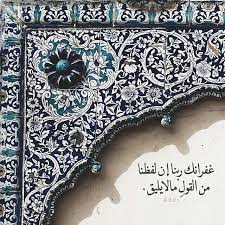 غفرانك ربنا إن لفظنا
من القول مالايليق.